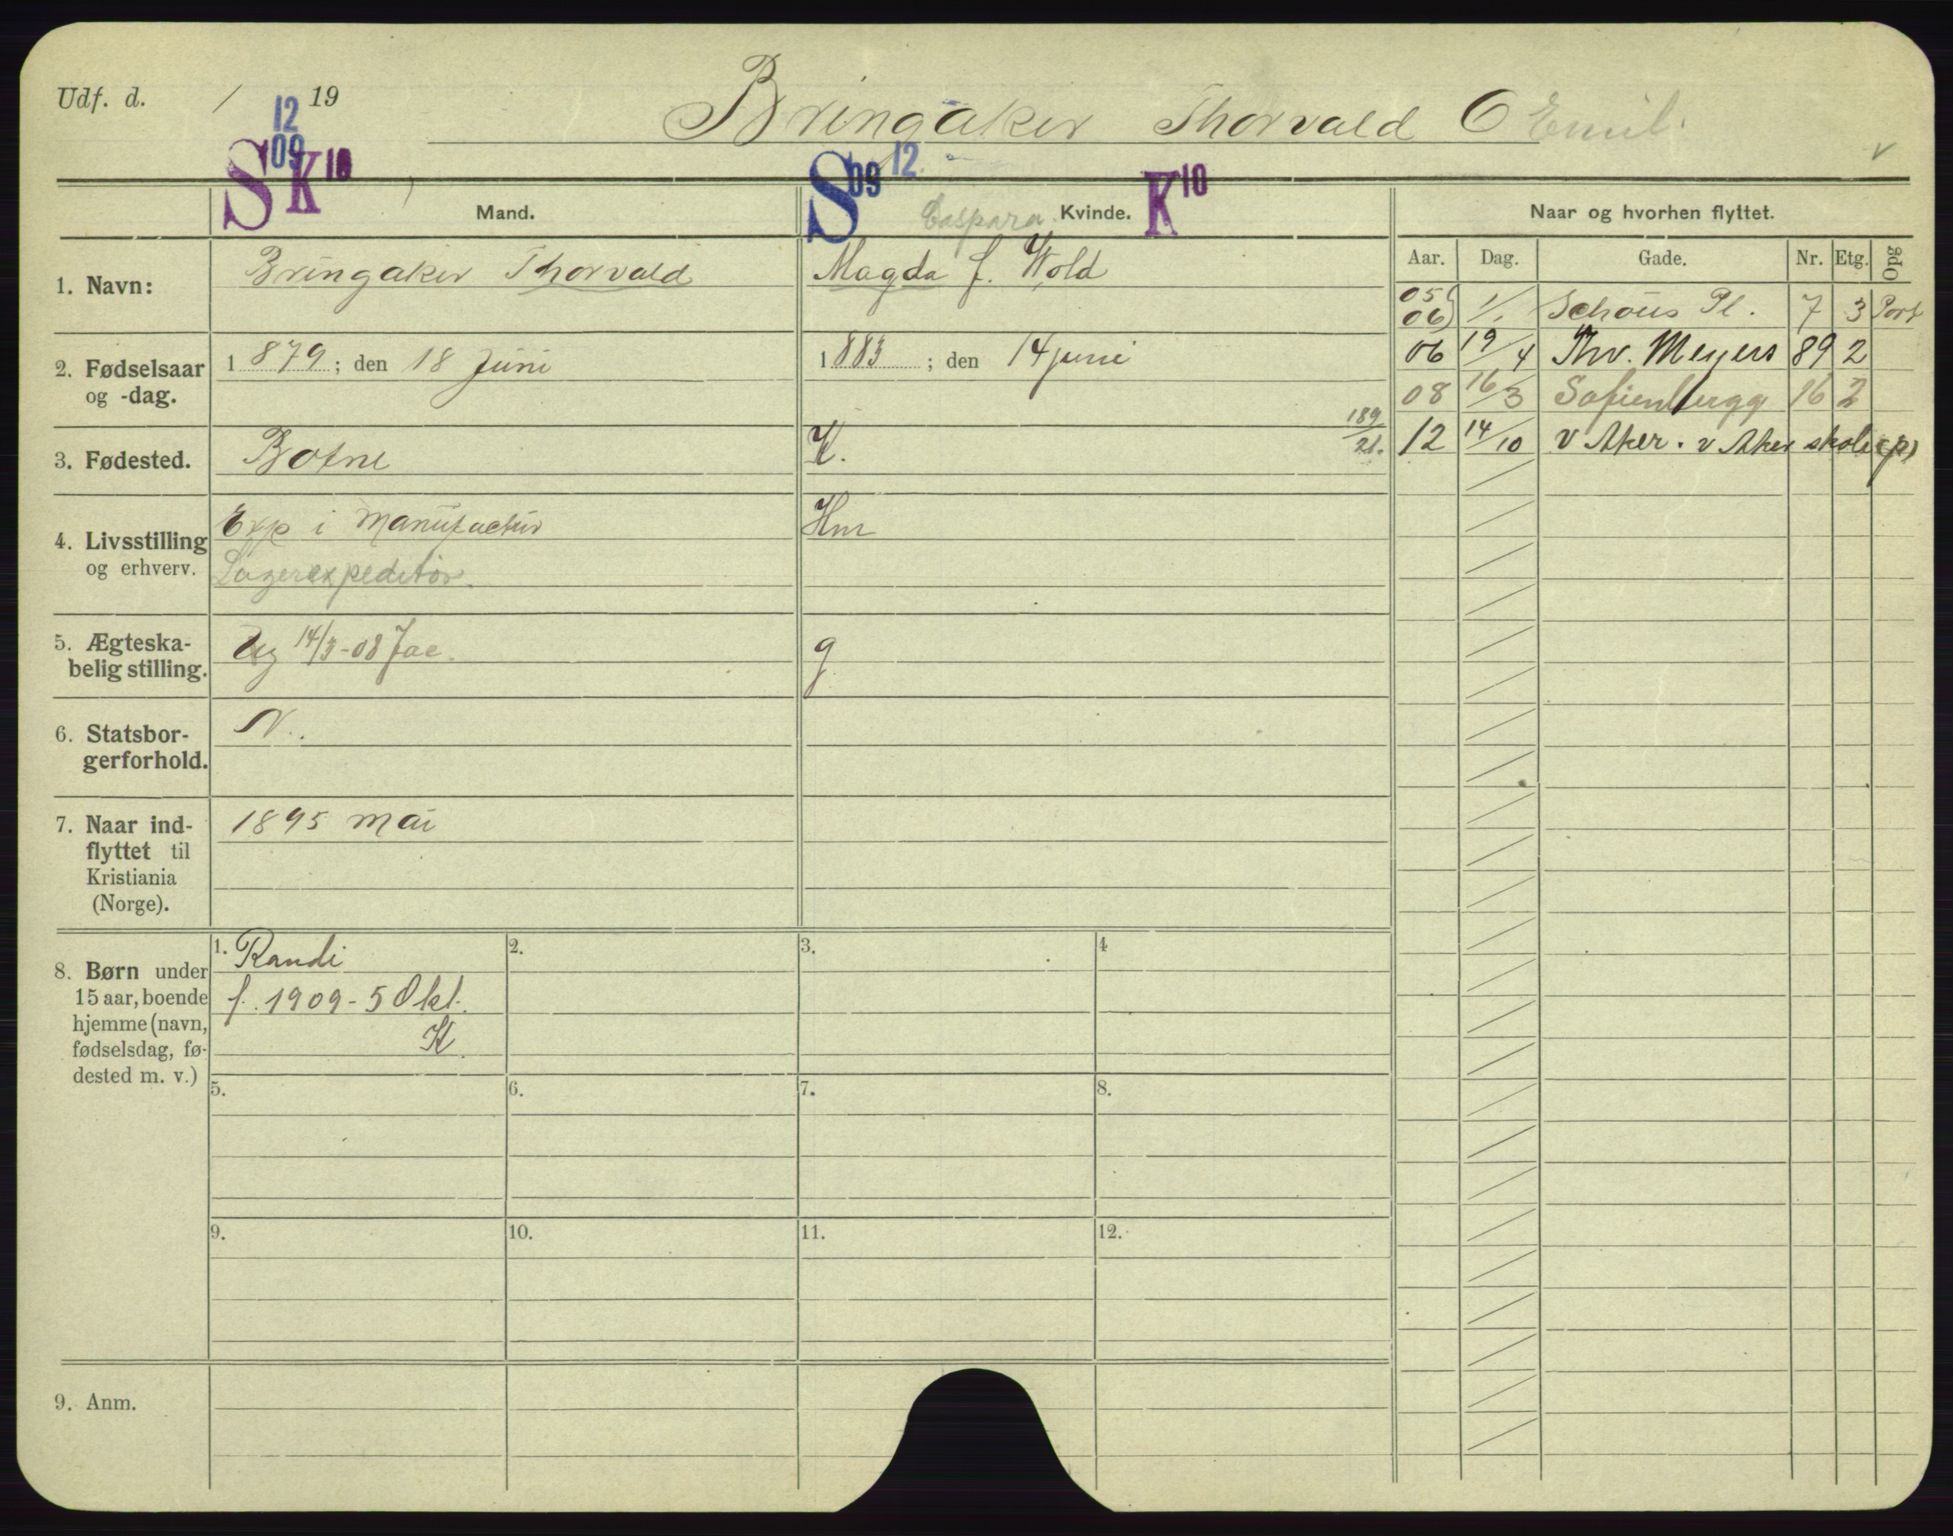 Udf. d. / 19
Bringaker Thorvald O Emil.
12
09
S K 10
S 09 12
K 10
v
Mand.
Caspara Kvinde.
Naar og hvorhen flyttet.
Aar. Dag. Gade. Nr. Etg. Opg
1. Navn: Bringaker Thorvald
Magda f. Wold
05
06 1/1 Schous Pl. 7 3 Port
06 19/4 Thv. Meyers 89 2
08 16/3 Sofienbergg 16 2
12 14/10 v Aker. v Aker skole (p)
2. Fødselsaar og -dag. 1879; den 18 Juni
1883; den 14 juni
3. Fødested. Botne
K. 189/21.
4. Livsstilling og erhverv. Exp i Manufactur
Lagerexpeditør.
Hm
5. Ægteska-
belig stilling. Ug 14/3-08 Jac.
g
6. Statsbor-
gerforhold. N.
7. Naar ind-
flyttet til
Kristiania
(Norge). 1895 mai
8. Børn under
15 aar, boende
hjemme (navn,
fødselsdag, fø-
dested m. v.)
1. Randi
f. 1909 - 5 Okt.
K
2.
3.
4
5.
6.
7.
8.
9.
10.
11.
12.
9. Anm.